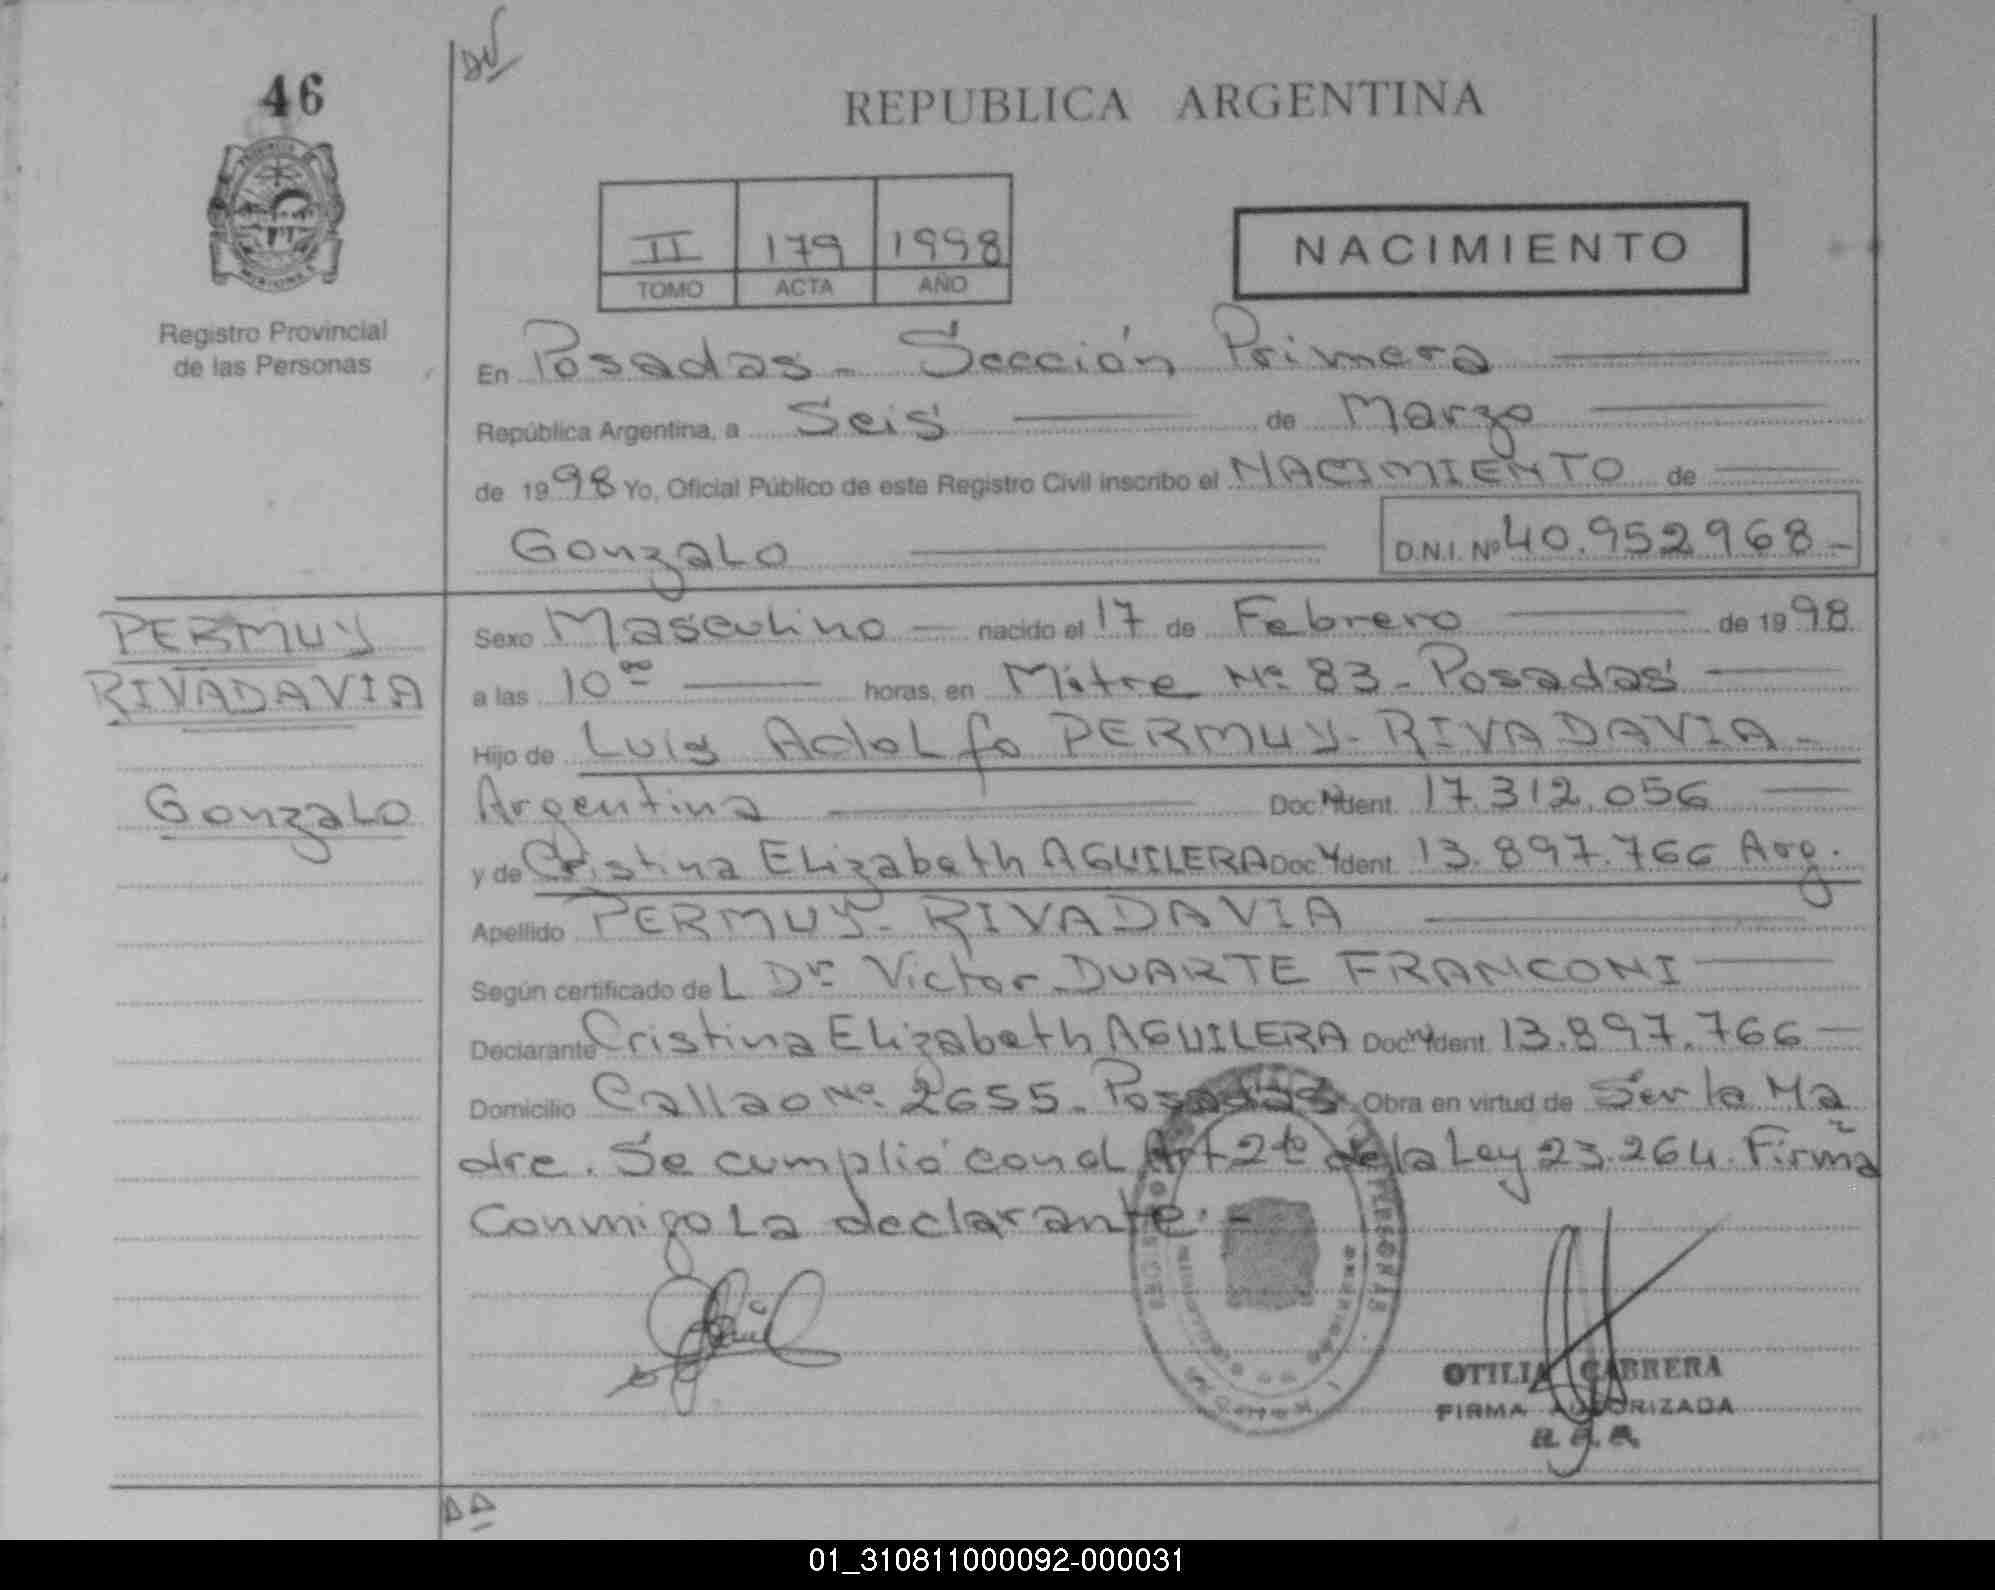 46
REPUBLICA ARGENTINA
II 179 1998
TOMO ACTA AÑO
NACIMIENTO
Registro Provincial
de las Personas
En Posadas - Sección Primera
República Argentina, a Seis de Marzo
de 1998 Yo, Oficial Público de este Registro Civil inscribo el NACIMIENTO de
Gonzalo D.N.I. Nº 40.952968-
PERMUY
RIVADAVIA
Gonzalo
Sexo Masculino nacido el 17 de Febrero de 1998.
a las 10 00 horas, en Mitre Nº 83 - Posadas
Hijo de Luis Adolfo PERMUY - RIVADAVIA -
Argentina Doc. Ident. 17.312.056
y de Cristina Elizabeth AGUILERA Doc. Ident. 13.897.766 Arg.
Apellido PERMUY - RIVADAVIA
Según certificado de L Dr. Victor DUARTE FRANCONI
Declarante Cristina Elizabeth AGUILERA Doc. Ident. 13.897.766
Domicilio Callao Nº 2655 - Posadas Obra en virtud de Ser la Ma
dre. Se cumplió con el Art 2to de la Ley 23.264. Firma
Conmigo La declarante.-
OTILIA CABRERA
FIRMA AUTORIZADA
01_310811000092-000031